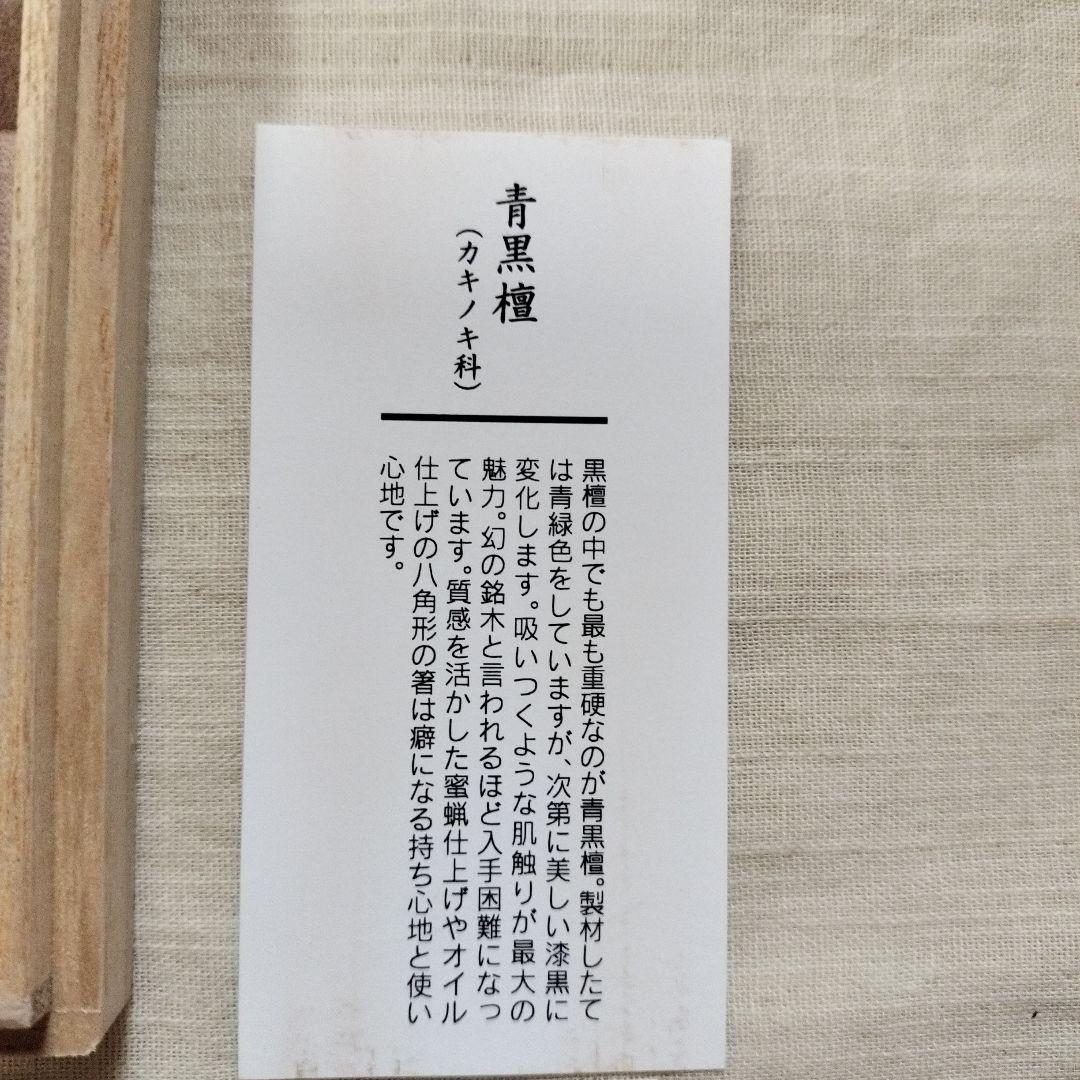 青黒檀
（カキノキ科）
黒檀の中でも最も重硬なのが青黒檀。製材したて
は青緑色をしていますが、次第に美しい漆黒に
変化します。吸いつくような肌触りが最大の
魅力。幻の銘木と言われるほど入手困難になっ
ています。質感を活かした蜜蝋仕上げやオイル
仕上げの八角形の箸は癖になる持ち心地と使い
心地です。